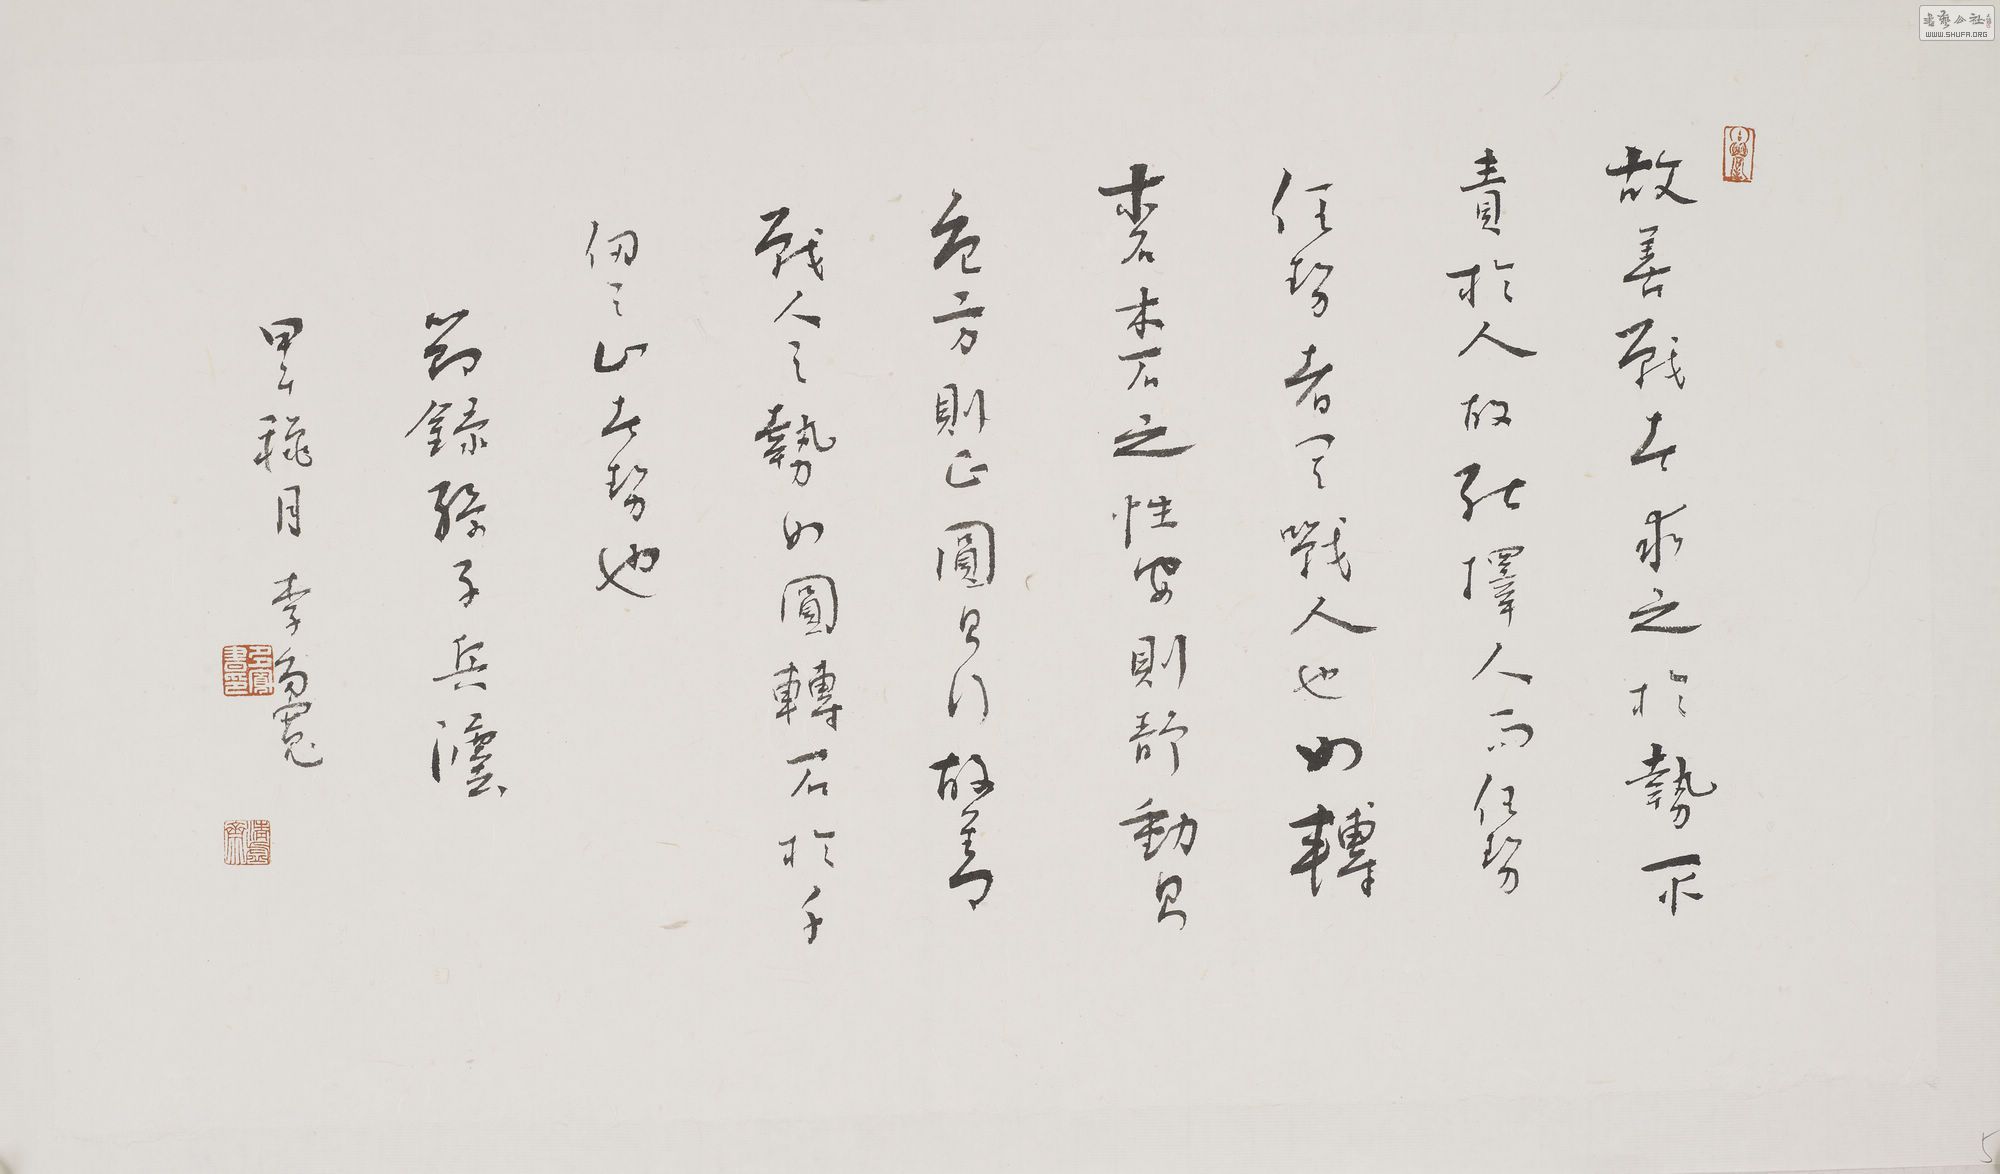 故善戰者求之於勢不
責於人故能擇人而任勢
任勢者其戰人也如轉
木石木石之性安則靜動則
危方則止圓則行故善
戰人之勢如圓轉石於千
仞之山者勢也
節錄孫子兵灋
甲午穐月 李
書藝公社
WWW.SHUFA.ORG
5